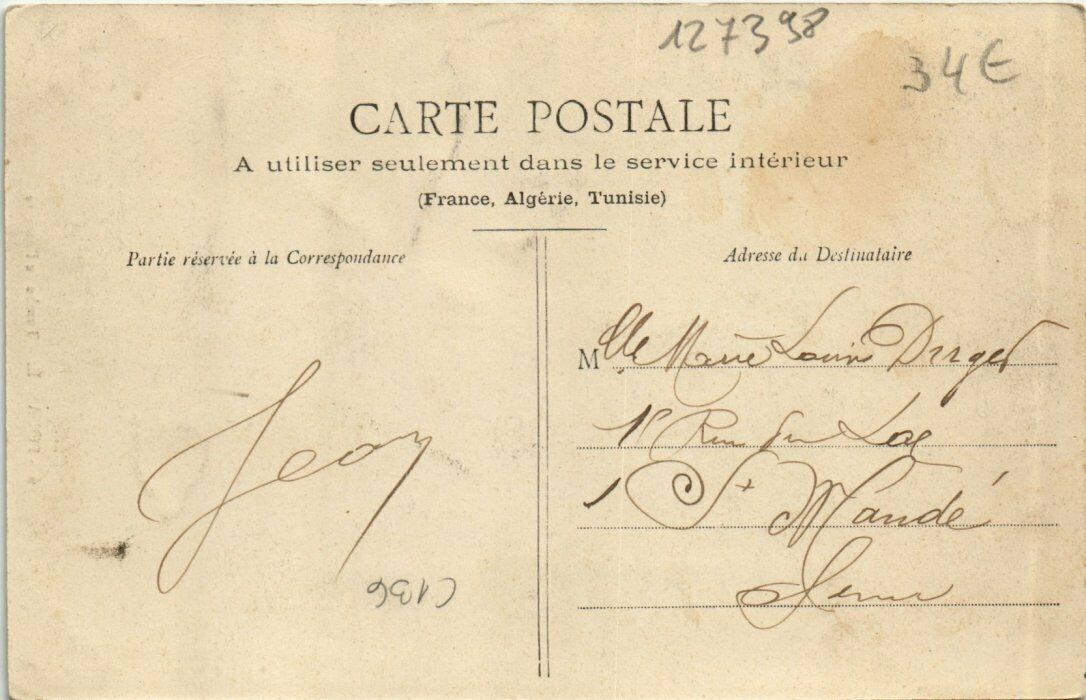 127398
34€
CARTE POSTALE
A utiliser seulement dans le service intérieur
(France, Algérie, Tunisie)
Partie réservée à la Correspondance
Adresse du Destinataire
Mlle Marie Louise
Rue du Lac
St Mandé
Seine
Jean
C136